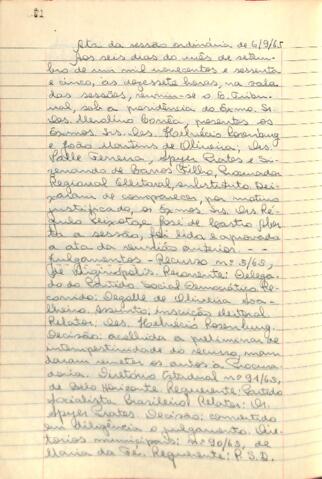 Ata da sessão ordinária de 6/9/65
Aos seis dias do mês de setem-
bro de um mil novecentos e sessenta
e cinco, às dezessete horas, na sala
das sessões, reuniu-se o E. Tribu-
nal, sob a presidência do Exmo. Sr.
Des. Merolino Corrêa, presentes os
Exmos. Srs. Des. Helvécio Rosenburg
e João Martins de Oliveira; Drs.
Valle Ferreira, Spyer Prates e
de Barros Filho, Procurador
Regional Eleitoral, substituto. Dei-
xaram de comparecer, por motivo
justificado, os Exmos. Srs. Drs.
e José de Castro. Aber-
ta a sessão, foi lida e aprovada
a ata da reunião anterior. -
Julgamentos - Recurso nº 5/65,
de Virginópolis. Recorrente: Delega-
do do Partido Social Democrático. Re-
corrido: de Oliveira Coe-
lho. Assunto: Inscrição eleitoral.
Relator: Des. Helvécio Rosenburg.
Decisão: acolhida a preliminar de
intempestividade do recurso, man-
daram remeter os autos à Procura-
doria. Diretório Estadual nº 91/65,
de Belo Horizonte. Requerente: Partido
Socialista Brasileiro. Relator: Dr.
Spyer Prates. Decisão: convertido
em diligência o julgamento. Dire-
tórios municipais: nº 90/65, de
Maria da Fé. Requerente: P.S.D.